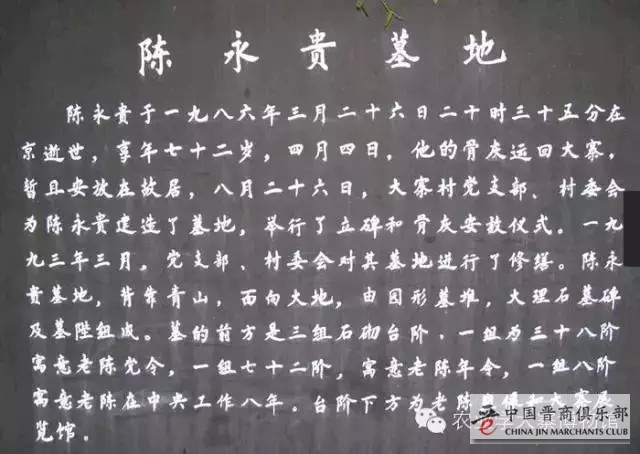 陈永贵墓地
陈永贵于一九八六年三月二十六日二十时三十五分在
京逝世，享年七十二岁，四月四日，他的骨灰运回大寨，
暂且安放在故居，八月二十六日，大寨村党支部、村委会
为陈永贵建造了墓地，举行了立碑和骨灰安放仪式。一九
九三年三月，党支部、村委会对其墓地进行了修缮。陈永
贵墓地，背靠青山，面向大地，由园形墓堆，大理石墓碑
及墓陛组成。墓的前方是三组石砌台阶，一组为三十八阶
寓意老陈党令，一组七十二阶，寓意老陈年令，一组八阶
寓意老陈在中央工作八年。台阶下方为老陈和大寨展
览馆。
农业学大寨博物馆
中国晋商俱乐部
CHINA JIN MERCHANTS CLUB